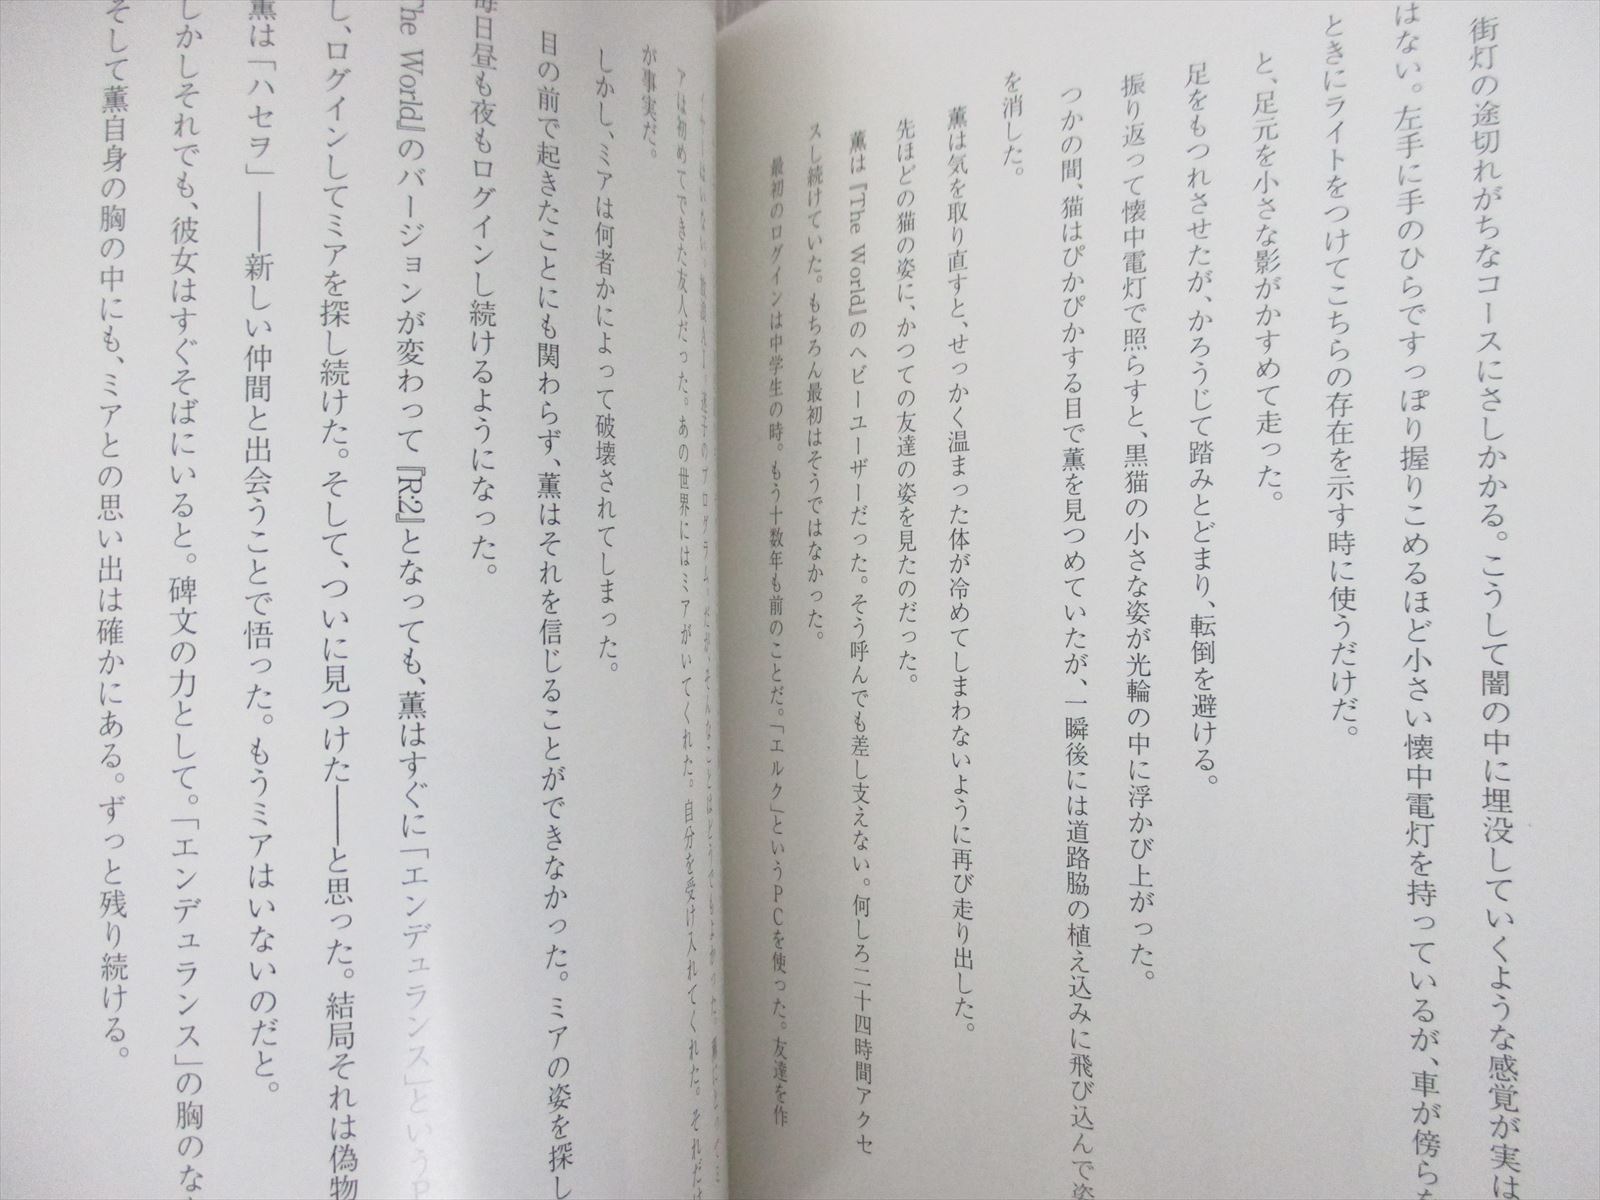 街灯の途切れがちなコースにさしかかる。こうして闇の中に埋没していくような感覚が実は
はない。左手に手のひらですっぽり握りこめるほど小さい懐中電灯を持っているが、車が傍らを
ときにライトをつけてこちらの存在を示す時に使うだけだ。
と、足元を小さな影がかすめて走った。
足をもつれさせたが、かろうじて踏みとどまり、転倒を避ける。
振り返って懐中電灯で照らすと、黒猫の小さな姿が光輪の中に浮かび上がった。
つかの間、猫はぴかぴかする目で薫を見つめていたが、一瞬後には道路脇の植え込みに飛び込んで姿
を消した。
薫は気を取り直すと、せっかく温まった体が冷めてしまわないように再び走り出した。
先ほどの猫の姿に、かつての友達の姿を見たのだった。
薫は『The World』のヘビーユーザーだった。そう呼んでも差し支えない。何しろ二十四時間アクセ
スし続けていた。もちろん最初はそうではなかった。
最初のログインは中学生の時。もう十数年も前のことだ。「エルク」というPCを使った。友達を作
イヤーはいない。放浪AI。迷子のプログラム。だが、そんなことはどうでもよかった。薫にとってミ
アは初めてできた友人だった。あの世界にはミアがいてくれた。自分を受け入れてくれた。それだけ
が事実だ。
しかし、ミアは何者かによって破壊されてしまった。
目の前で起きたことにも関わらず、薫はそれを信じることができなかった。ミアの姿を探し
毎日昼も夜もログインし続けるようになった。
The World』のバージョンが変わって『R:2』となっても、薫はすぐに「エンデュランス」というP
し、ログインしてミアを探し続けた。そして、ついに見つけた――と思った。結局それは偽物
薫は「ハセヲ」――新しい仲間と出会うことで悟った。もうミアはいないのだと。
しかしそれでも、彼女はすぐそばにいると。碑文の力として。「エンデュランス」の胸のな
そして薫自身の胸の中にも、ミアとの思い出は確かにある。ずっと残り続ける。